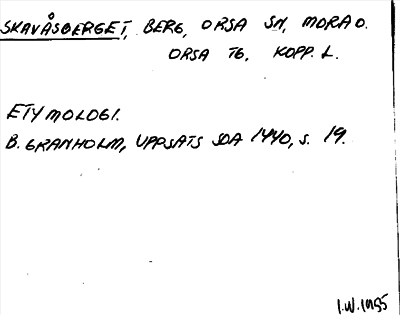 SKAVÅSBERGET, BERG, ORSA SN, MORA O.
ORSA TG, KOPP. L.
ETYMOLOGI.
B. GRANHOLM, UPPSATS SOA 1440, S. 19.
I.W. 1985